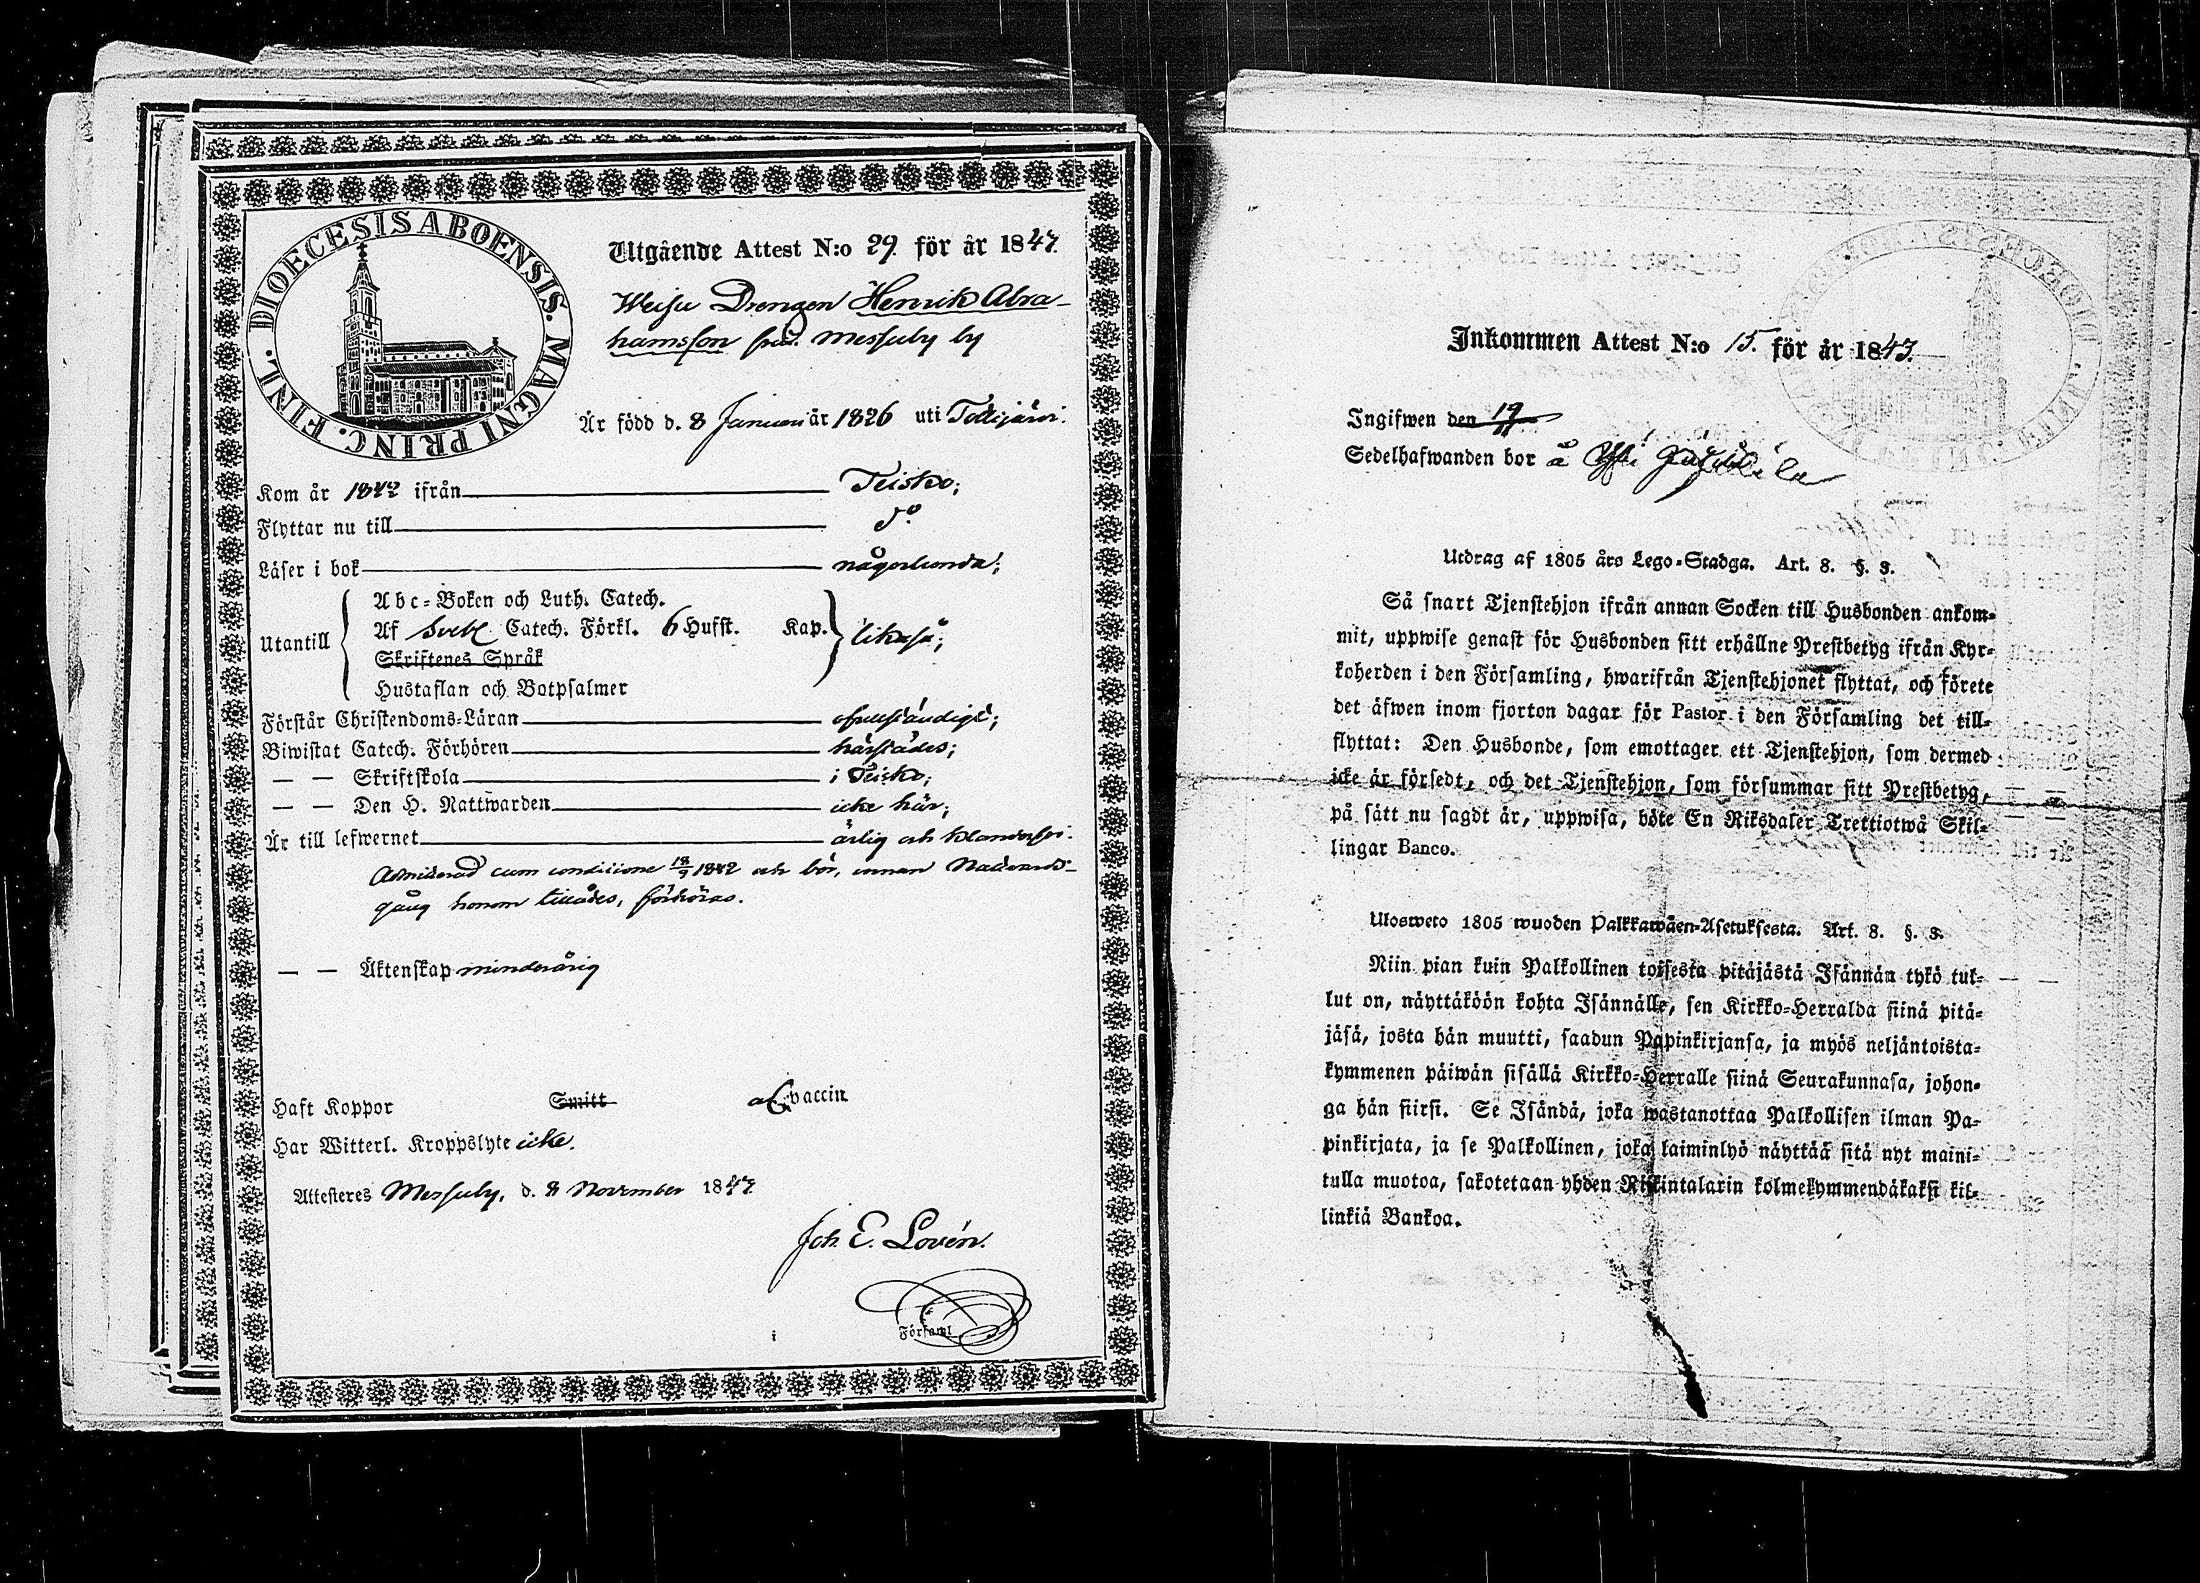 DIOECESIS ABOENSIS. MAGNI PRINC. FINL.
Utgående Attest N:o 29. för år 1847.
Drengen Henrik Abra-
hamsson från Messuby by
Är född d. 8 Januari år 1826 uti
Kom år 1842 ifrån Teisko;
Flyttar nu till d:o
Läser i bok någorlunda;
Utantill
Abc-Boken och Luth. Catech.
Af Sveb. Catech. Förkl. 6 Hufst. Kap. likaså;
Skriftenes Språk
Hustaflan och Botpsalmer
Förstår Christendoms-Läran ofullständigt;
Biwistat Catech. Förhören härstädes;
— — Skriftskola i Teisko;
— — Den H. Nattwarden icke här;
Är till lefwernet ärlig och
Admitterad cum conditione 18/9 1842 och bör, innan Nattvards-
gång honom tillådes, förhöras.
— — Äktenskap minderårig
Haft Koppor Smitt vaccin
Har Witterl. Kroppslyte icke.
Attesteres Messuby, d. 8 November 1847
Joh. E. Lovén.
i Församl.
Inkommen Attest N:o 15. för år 1847.
Ingifwen den 19/11
Sedelhafwanden bor å
Utdrag af 1805 års Lego-Stadga. Art. 8. §. 8.
Så snart Tjenstehjon ifrån annan Socken till Husbonden ankom-
mit, uppwise genast för Husbonden sitt erhållne Prestbetyg ifrån Kyr-
koherden i den Församling, hwarifrån Tjenstehjonet flyttat, och förete
det äfwen inom fjorton dagar för Pastor i den Församling det till-
flyttat: Den Husbonde, som emottager ett Tjenstehjon, som dermed
icke är försedt, och det Tjenstehjon, som försummar sitt Prestbetyg,
på sätt nu sagdt är, uppwisa, böte En Riksdaler Trettiotwå Skil-
lingar Banco.
Ulosweto 1805 wuoden Palkkawäen-Asetuksesta. Art. 8. §. 8.
Niin pian kuin Palkollinen toisesta pitäjästä Isännän tykö tul-
lut on, näyttäköön kohta Isännälle, sen Kirkko-Herralda siinä pitä-
jäsä, josta hän muutti, saadun Papinkirjansa, ja myös neljäntoista-
kymmenen päiwän sisällä Kirkko-Herralle siinä Seurakunnasa, johon-
ga hän siirsi. Se Isändä, joka wastanottaa Palkollisen ilman Pa-
pinkirjata, ja se Palkollinen, joka laiminlyö näyttää sitä nyt maini-
tulla muotoa, sakotetaan yhden Riikintalarin kolmekymmendäkaksi kil-
linkiä Bankoa.